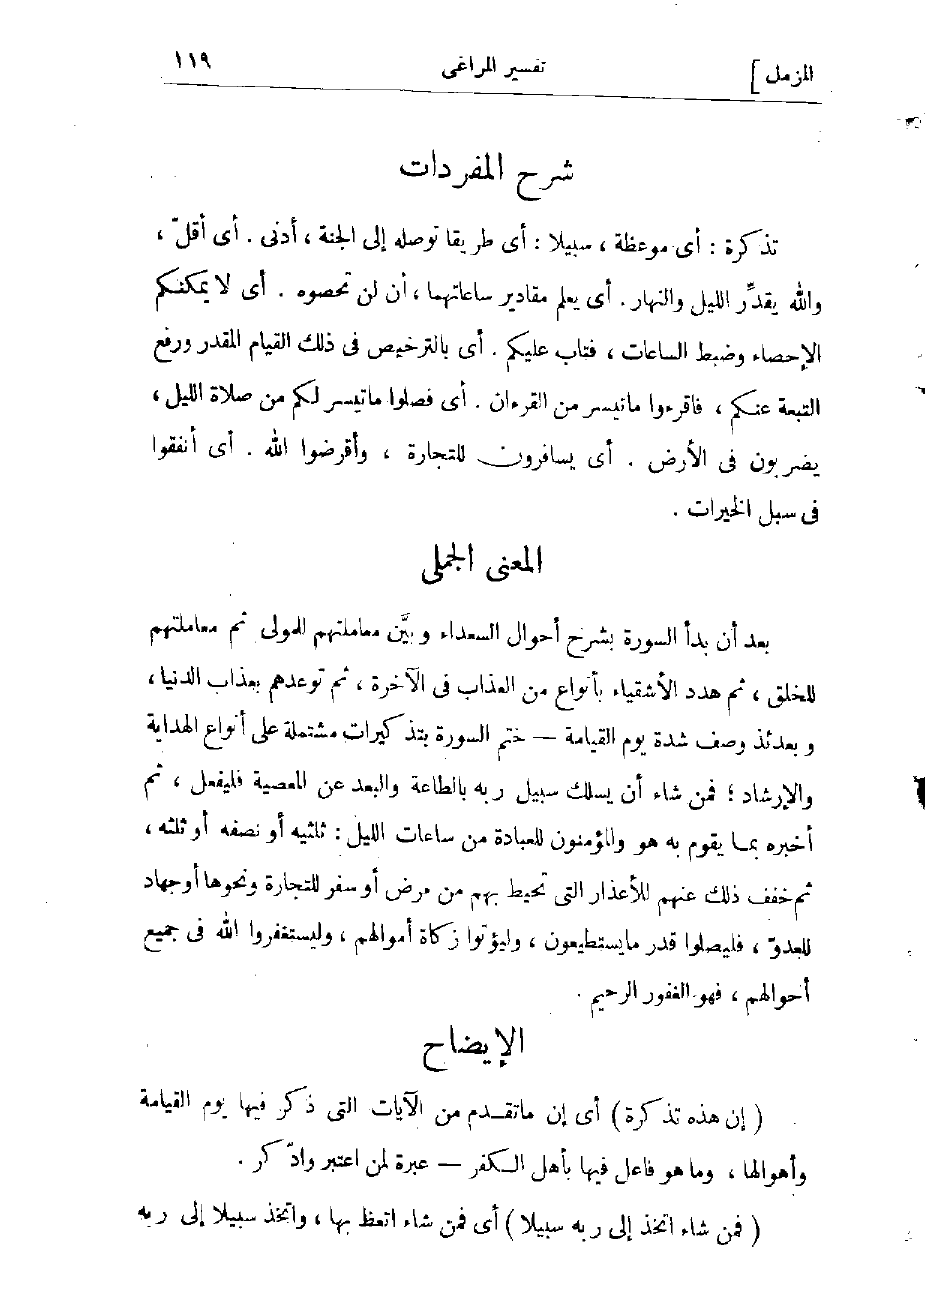 المزمل ] تفسير المراغى ١١٩
شرح المفردات
تذكرة : أى موعظة ، سبيلا : أى طريقا توصله إلى الجنة ، أدنى . أى أقلّ ،
والله يقدِّر الليل والنهار . أى يعلم مقادير ساعاتهما ، أن لن تحصوه . أى لا يمكنكم
الإحصاء وضبط الساعات ، فتاب عليكم . أى بالترخيص فى ذلك القيام المقدر ورفع
التبعة عنكم ، فاقرءوا ماتيسر من القرءان . أى فصلوا ماتيسر لكم من صلاة الليل ،
يضربون فى الأرض . أى يسافرون للتجارة ، وأقرضوا الله . أى أنفقوا
فى سبل الخيرات .
المعنى الجملى
بعد أن بدأ السورة بشرح أحوال السعداء وبيَّن معاملتهم للمولى ثم معاملتهم
للخلق ، ثم هدد الأشقياء بأنواع من العذاب فى الآخرة ، ثم توعدهم بعذاب الدنيا ،
وبعدئذ وصف شدة يوم القيامة — ختم السورة بتذكيرات مشتملة على أنواع الهداية
والإرشاد ؛ فمن شاء أن يسلك سبيل ربه بالطاعة والبعد عن المعصية فليفعل ، ثم
أخبره بما يقوم به هو والمؤمنون للعبادة من ساعات الليل : ثلثيه أو نصفه أو ثلثه ،
ثم خفف ذلك عنهم للأعذار التى تحيط بهم من مرض أو سفر للتجارة ونحوها أوجهاد
للعدوّ ، فليصلوا قدر مايستطيعون ، وليؤتوا زكاة أموالهم ، وليستغفروا الله فى جميع
أحوالهم ، فهو الغفور الرحيم .
الإيضاح
( إن هذه تذكرة ) أى إن ماتقدم من الآيات التى ذكر فيها يوم القيامة
وأهوالها ، وما هو فاعل فيها بأهل الكفر — عبرة لمن اعتبر وادّكر .
( فمن شاء اتخذ إلى ربه سبيلا ) أى فمن شاء اتعظ بها ، واتخذ سبيلا إلى ربه